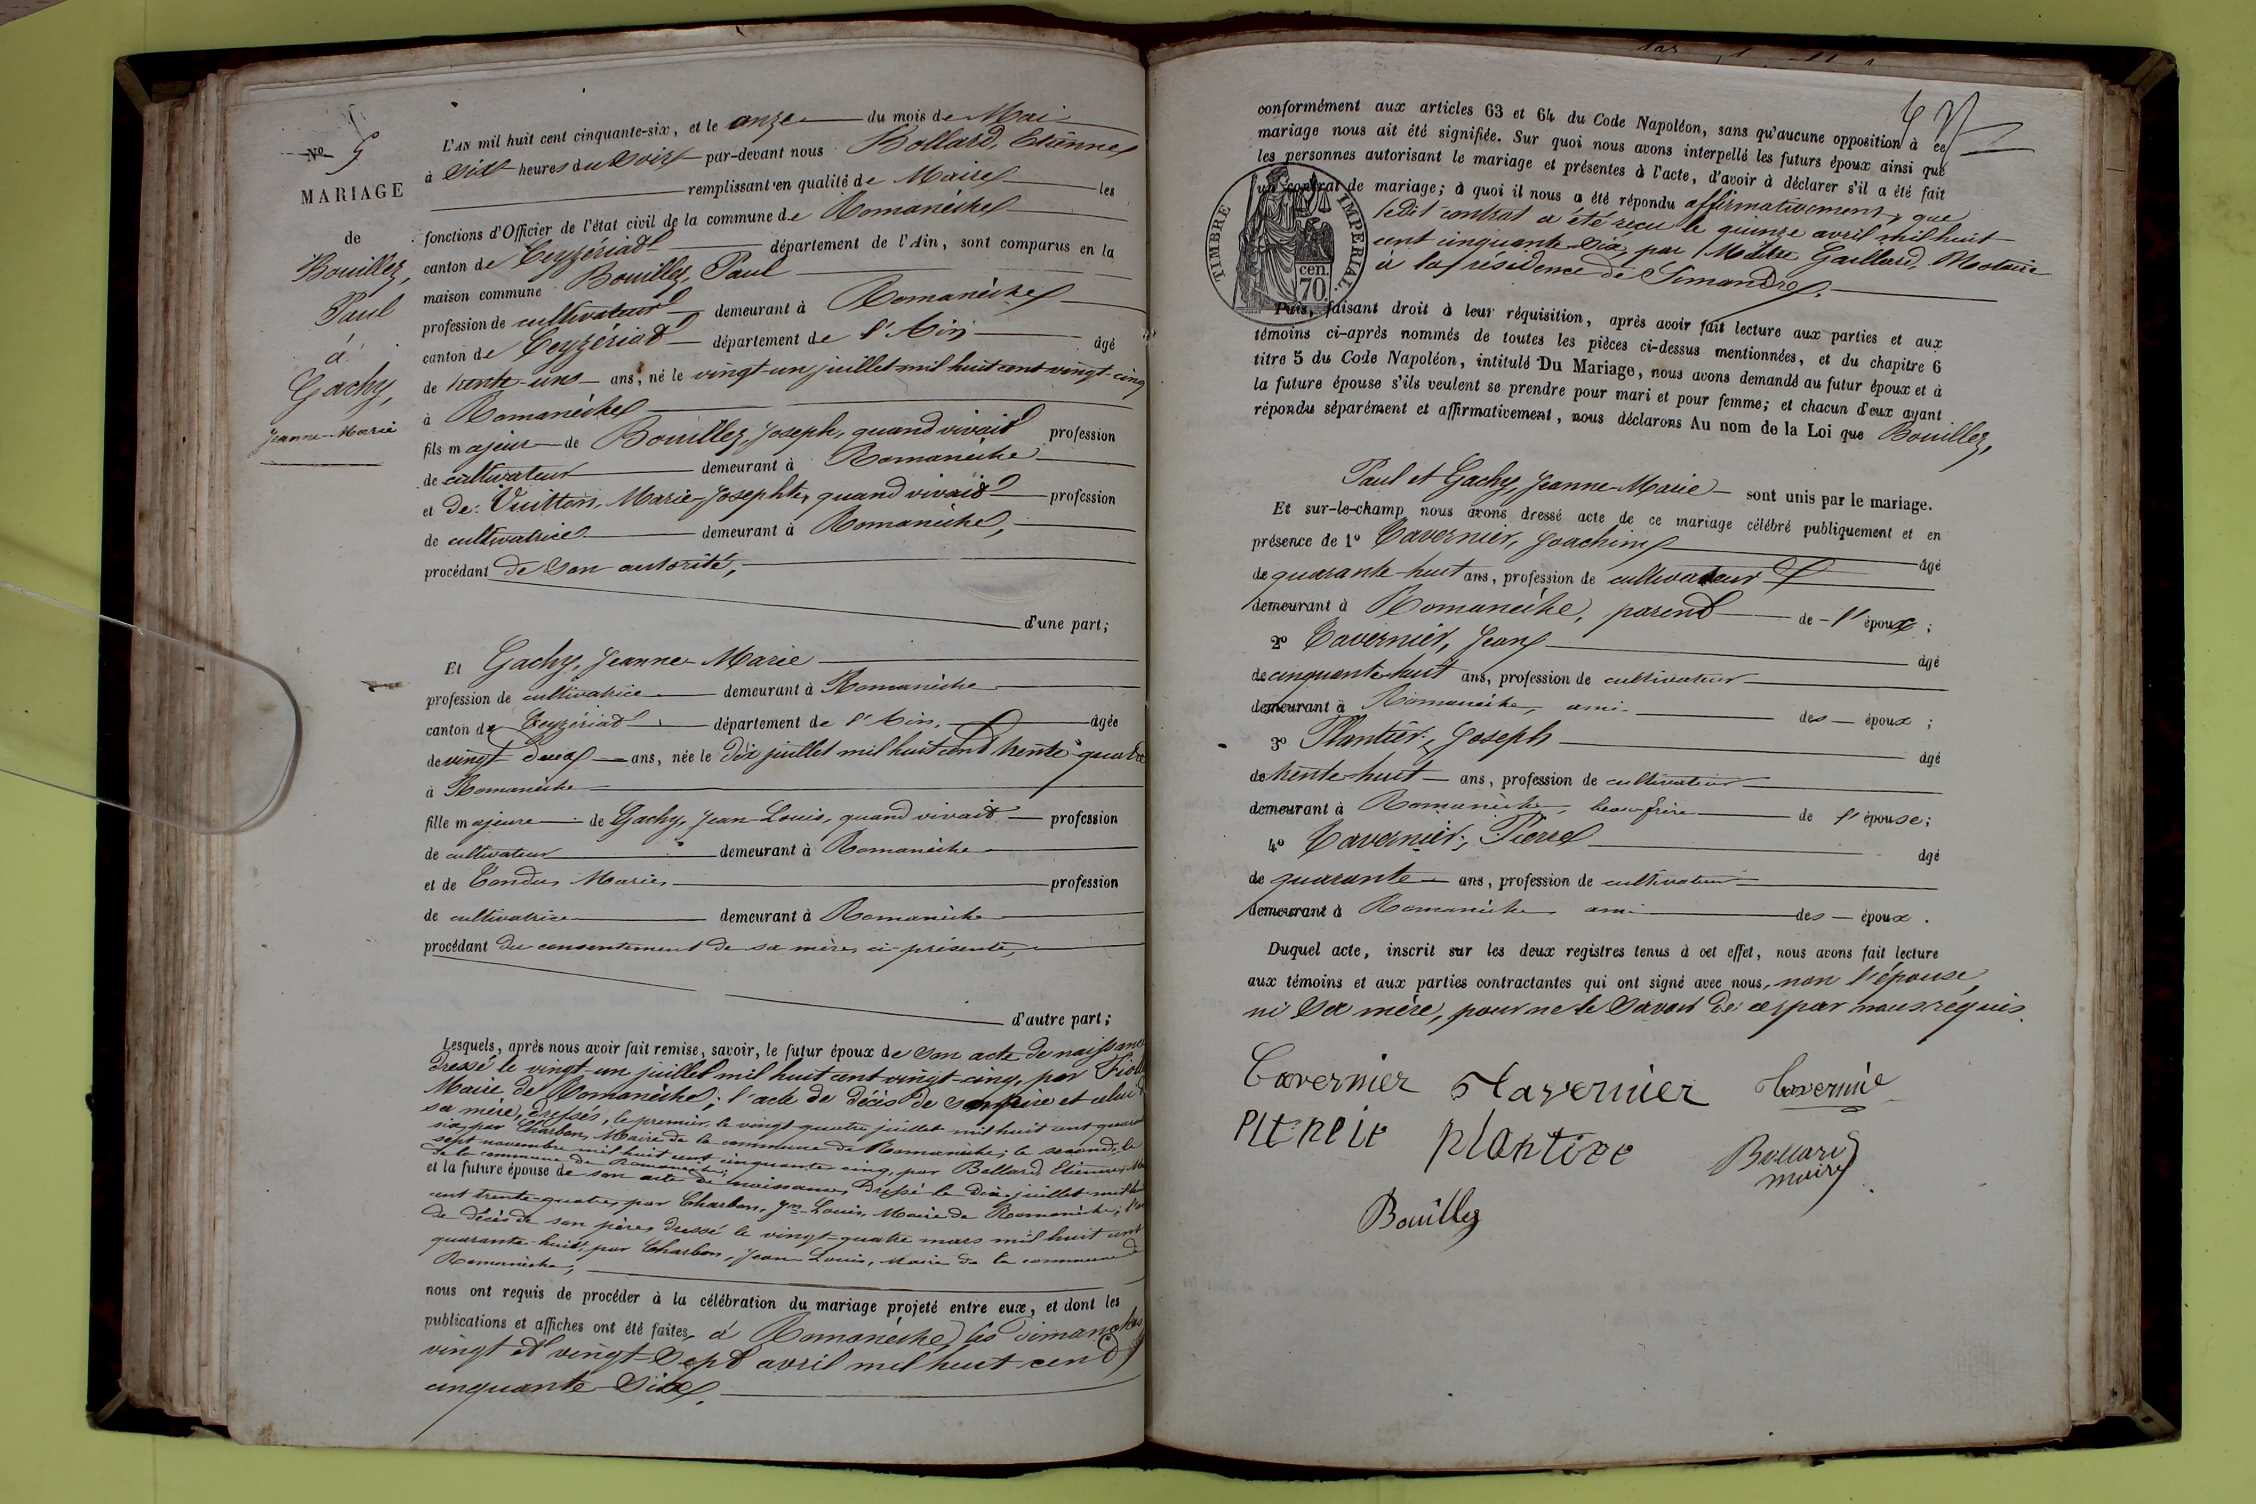 N° 5
MARIAGE
de
Bouillez,
Paul
à
Gachy,
Jeanne-Marie
L'AN mil huit cent cinquante-six, et le onze du mois de Mai
à six heures du soir par-devant nous Bollard, Etienne
remplissant en qualité de Maire les
fonctions d'Officier de l'état civil de la commune de Romanèche
canton de Ceyzériat département de l'Ain, sont comparus en la
maison commune Bouillez, Paul
profession de cultivateur demeurant à Romanèche
canton de Ceyzériat département de l'Ain âgé
de trente-uns ans, né le vingt-un juillet mil huit cent vingt-cinq
à Romanèche
fils majeur de Bouillez, Joseph, quand vivait profession
de cultivateur demeurant à Romanèche
et de Vuitton, Marie-Josephte, quand vivait profession
de cultivatrice demeurant à Romanèche,
procédant de son autorité,
d'une part;
Et Gachy, Jeanne-Marie
profession de cultivatrice demeurant à Romanèche
canton de Ceyzériat département de l'Ain, âgée
de vingt deux ans, née le dix juillet mil huit cent trente-quatre
à Romanèche
fille majeure de Gachy, Jean-Louis, quand vivait profession
de cultivateur demeurant à Romanèche
et de Tondu Marie, profession
de cultivatrice demeurant à Romanèche
procédant du consentement de sa mère, ci-présente,
d'autre part;
Lesquels, après nous avoir fait remise, savoir, le futur époux de son acte de naissance
dressé le vingt-un juillet mil huit cent vingt-cinq, par
Maire de Romanèche; l'acte de décès de son père et celui d
sa mère, dressés, le premier, le vingt-quatre juillet mil huit cent quara
six, par Charbon, Maire de la commune de Romanèche; le second, le
sept novembre mil huit cent cinquante cinq, par Bollard Etienne, Ma
de la commune de Romanèche;
et la future épouse de son acte de naissance, dressé le dix juillet mil h
cent trente-quatre, par Charbon, Jn-Louis, Maire de Romanèche; l'a
de décès de son père, dressé le vingt-quatre mars mil huit cent
quarante-huit, par Charbon, Jean-Louis, Maire de la commune de
Romanèche,
nous ont requis de procéder à la célébration du mariage projeté entre eux, et dont les
publications et affiches ont été faites, à Romanèche, les dimanches
vingt et vingt-sept avril mil huit cent
cinquante-six.
conformément aux articles 63 et 64 du Code Napoléon, sans qu'aucune opposition à ce
mariage nous ait été signifiée. Sur quoi nous avons interpellé les futurs époux ainsi que
les personnes autorisant le mariage et présentes à l'acte, d'avoir à déclarer s'il a été fait
un contrat de mariage; à quoi il nous a été répondu affirmativement, que
ledit contrat a été reçu le quinze avril mil huit
cent cinquante-six, par Maître Gaillard, Notaire
à la résidence de Simandre.
TIMBRE IMPERIAL.
cen.
70.
Puis, faisant droit à leur réquisition, après avoir fait lecture aux parties et aux
témoins ci-après nommés de toutes les pièces ci-dessus mentionnées, et du chapitre 6
titre 5 du Code Napoléon, intitulé Du Mariage, nous avons demandé au futur époux et à
la future épouse s'ils veulent se prendre pour mari et pour femme; et chacun d'eux ayant
répondu séparément et affirmativement, nous déclarons Au nom de la Loi que Bouillez,
Paul et Gachy, Jeanne-Marie sont unis par le mariage.
Et sur-le-champ nous avons dressé acte de ce mariage célébré publiquement et en
présence de 1° Tavernier, Joachim âgé
de quarante-huit ans, profession de cultivateur
demeurant à Romanèche, parent de l'époux;
2° Tavernier, Jean âgé
de cinquante-huit ans, profession de cultivateur
demeurant à Romanèche, ami des époux;
3° Plantier, Joseph âgé
de trente-huit ans, profession de cultivateur
demeurant à Romanèche, beau-frère de l'épouse;
4° Tavernier, Pierre âgé
de quarante ans, profession de cultivateur
demeurant à Romanèche ami des époux.
Duquel acte, inscrit sur les deux registres tenus à cet effet, nous avons fait lecture
aux témoins et aux parties contractantes qui ont signé avec nous, non l'épouse,
ni sa mère, pour ne le savoir de ce par nous réquis.
Tavernier Tavernier Tavernie
plantier Bollard
maire
Bouillez